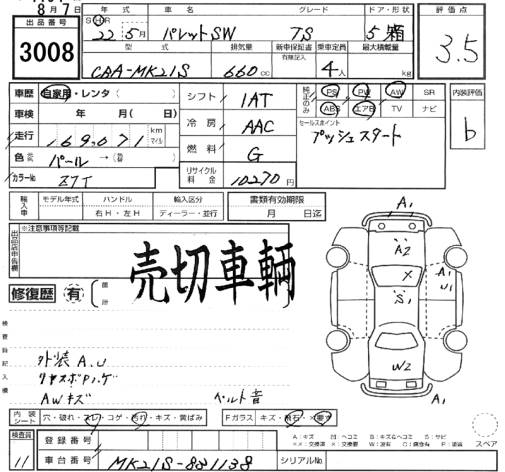 8月7日
出品番号
3008
年式 車名 グレード ドア・形状
SHR 22年5月 パレットSW TS 5 箱
型式 排気量 新車保証書 有無記入 乗車定員 最大積載量
CBA-MK21S 660cc 4人 kg
評価点
3.5
車歴 自家用・レンタ( )
車検 年 月( )
走行 169,071 km マイル
色 パール →( )
カラーNo Z7T
シフト 1AT
冷房 AAC
燃料 G
リサイクル料金 10270円
純正のみ PS PW AW SR
ABS エアB TV ナビ
セールスポイント
プッシュスタート
内装評価
b
輸入車 モデル年式 ハンドル 輸入区分
右H・左H ディーラー・並行
書類有効期限
月 日迄
出品店申告欄
※注意事項等記載
売切車輌
修復歴 有 箇所
検査員記入欄
外装 A.U
AWキズ
ベルト音
A1
A2
A1
U1
X
S1
W2
A1
内装シート 穴・破れ・スレ・コゲ・汚れ・キズ・黄ばみ
Fガラス キズ・飛石・×要す
A:キズ U:ヘコミ B:キズ&ヘコミ S:サビ
スペア
検査員 11
登録番号
車台番号 MK21S-881138
シリアルNo